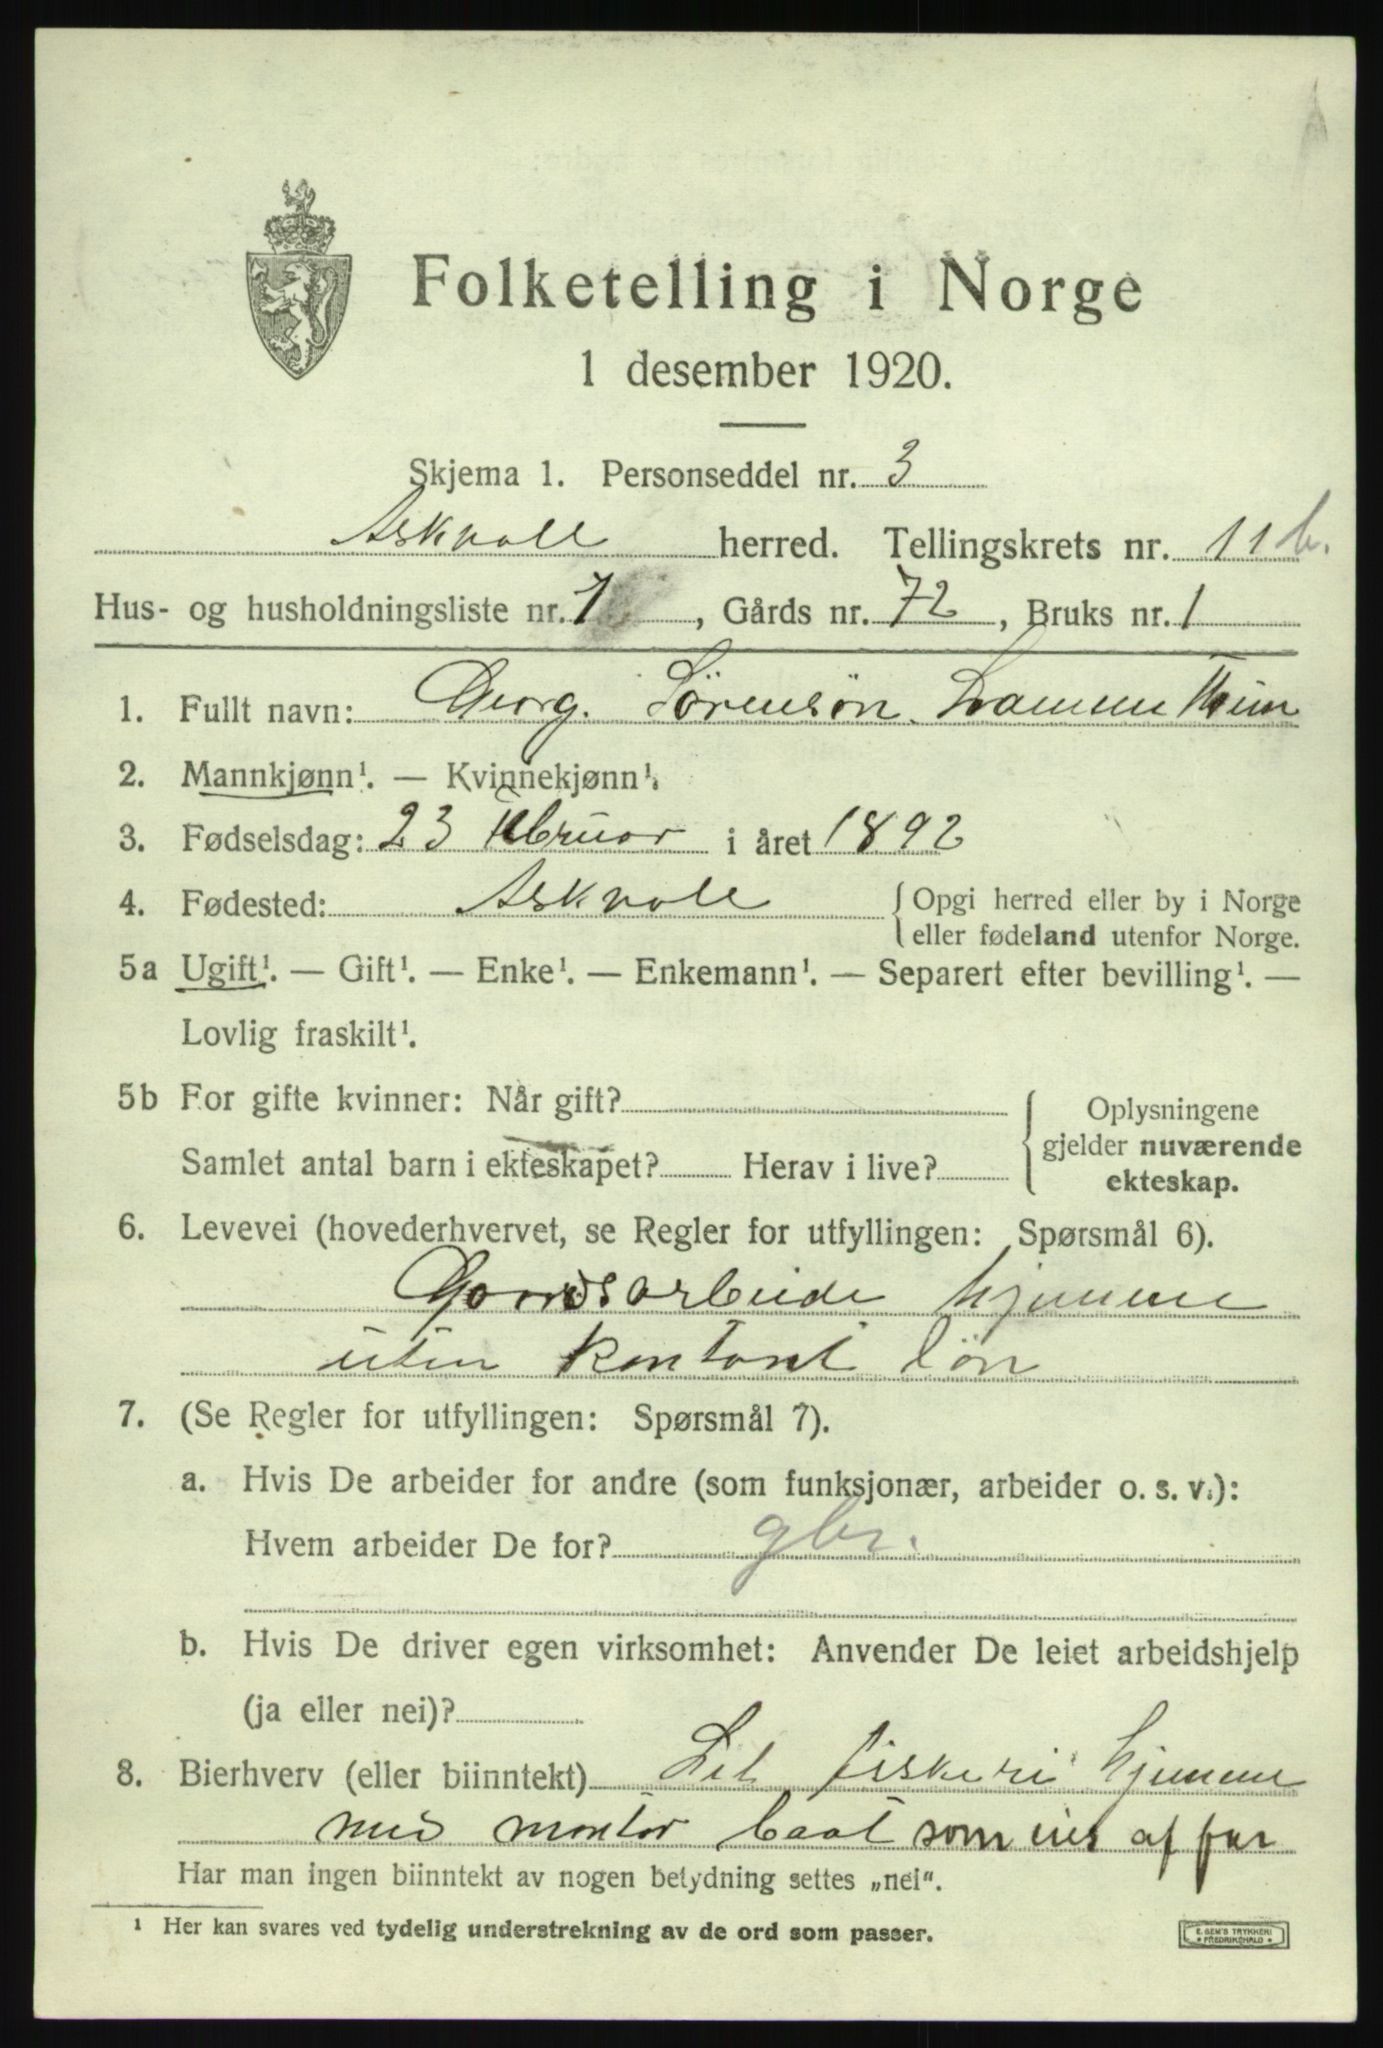 Folketelling i Norge
1 desember 1920.
Skjema 1. Personseddel nr. 3
Askvoll herred. Tellingskrets nr. 11 b.
Hus- og husholdningsliste nr. 1, Gårds nr. 72, Bruks nr. 1
1. Fullt navn: Georg. Sörensön
2. Mannkjønn¹. — Kvinnekjønn¹.
3. Fødselsdag: 23 Februar i året 1892
4. Fødested: Askvoll { Opgi herred eller by i Norge
eller fødeland utenfor Norge.
5a Ugift¹. — Gift¹. — Enke¹. — Enkemann¹. — Separert efter bevilling¹. —
Lovlig fraskilt¹.
5b For gifte kvinner: Når gift? { Oplysningene
gjelder nuværende
Samlet antal barn i ekteskapet? Herav i live?
ekteskap.
6. Levevei (hovederhvervet, se Regler for utfyllingen: Spørsmål 6).
Gaardsarbeide hjemme
uten kontant lön
7. (Se Regler for utfyllingen: Spørsmål 7).
a. Hvis De arbeider for andre (som funksjonær, arbeider o. s. v.):
Hvem arbeider De for? gbr.
b. Hvis De driver egen virksomhet: Anvender De leiet arbeidshjelp
(ja eller nei)?
8. Bierhverv (eller biinntekt) Lit fiskeri hjemme
med motor baat som eies af far
Har man ingen biinntekt av nogen betydning settes „nei“.
¹ Her kan svares ved tydelig understrekning av de ord som passer.
E. SEM'S TRYKKERI
FREDRIKSHALD